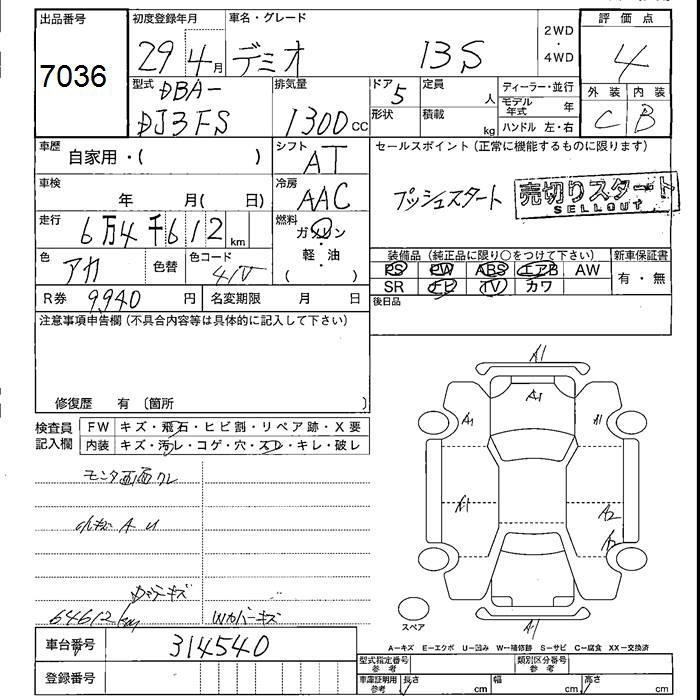 出品番号 初度登録年月 車名・グレード 評価点
7036 29年4月 デミオ 13S 2WD・4WD 4
型式 DBA-DJ3FS 排気量 1300cc ドア 5 定員 人 ディーラー・並行 外装 内装
形状 積載 kg モデル年式 年 C B
ハンドル 左・右
車歴 自家用・( ) シフト AT セールスポイント(正常に機能するものに限ります)
車検 年 月( 日) 冷房 AAC プッシュスタート 売切りスタート
SELLOUT
走行 6万4千612km 燃料 ガソリン・軽・油 ( )
色 アカ 色替 色コード 41V 装備品(純正品に限り○をつけて下さい) 新車保証書
PS PW ABS エアB AW 有・無
R券 9940円 名変期限 月 日 SR ナビ TV カワ
注意事項申告欄(不具合内容等は具体的に記入して下さい) 後日品
修復歴 有 (箇所 )
検査員記入欄 FW キズ・飛石・ヒビ割・リペア跡・X要
内装 キズ・汚レ・コゲ・穴・スレ・キレ・破レ
A1
A1 A1 A1
モニタ画面クレ
A1 A2
A2
64612km Wカバーキズ
A1
スペア
A-キズ E-エクボ U-凹み W-補修跡 S-サビ C-腐食 XX-交換済
車台番号 314540
型式指定番号 参考 類別区分番号 参考
登録番号 車庫証明用 参考 長さ cm 幅 cm 高さ cm